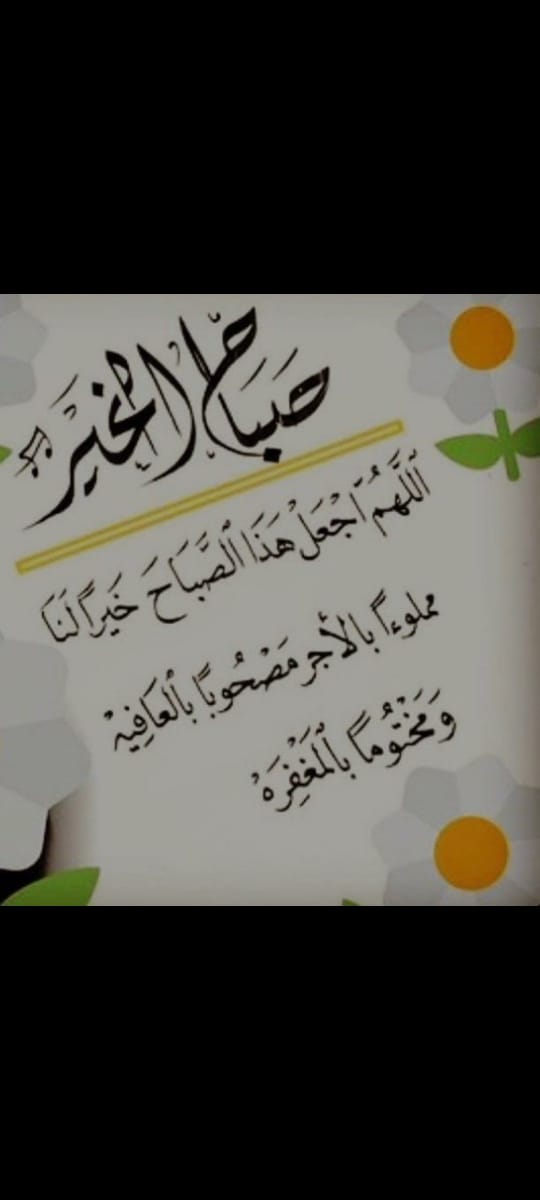 صَبَاحُ الْخَيْر
اَللَّهُمَّ اَجْعَلْ هَذَا اَلصَّبَاحَ خَيْرًا لَنَا
مملوءاً بالأجر مَصْحُوبًا بِالْعَافِيَهْ
وَمَخْتُومًا بِالْمَغْفِرَهْ